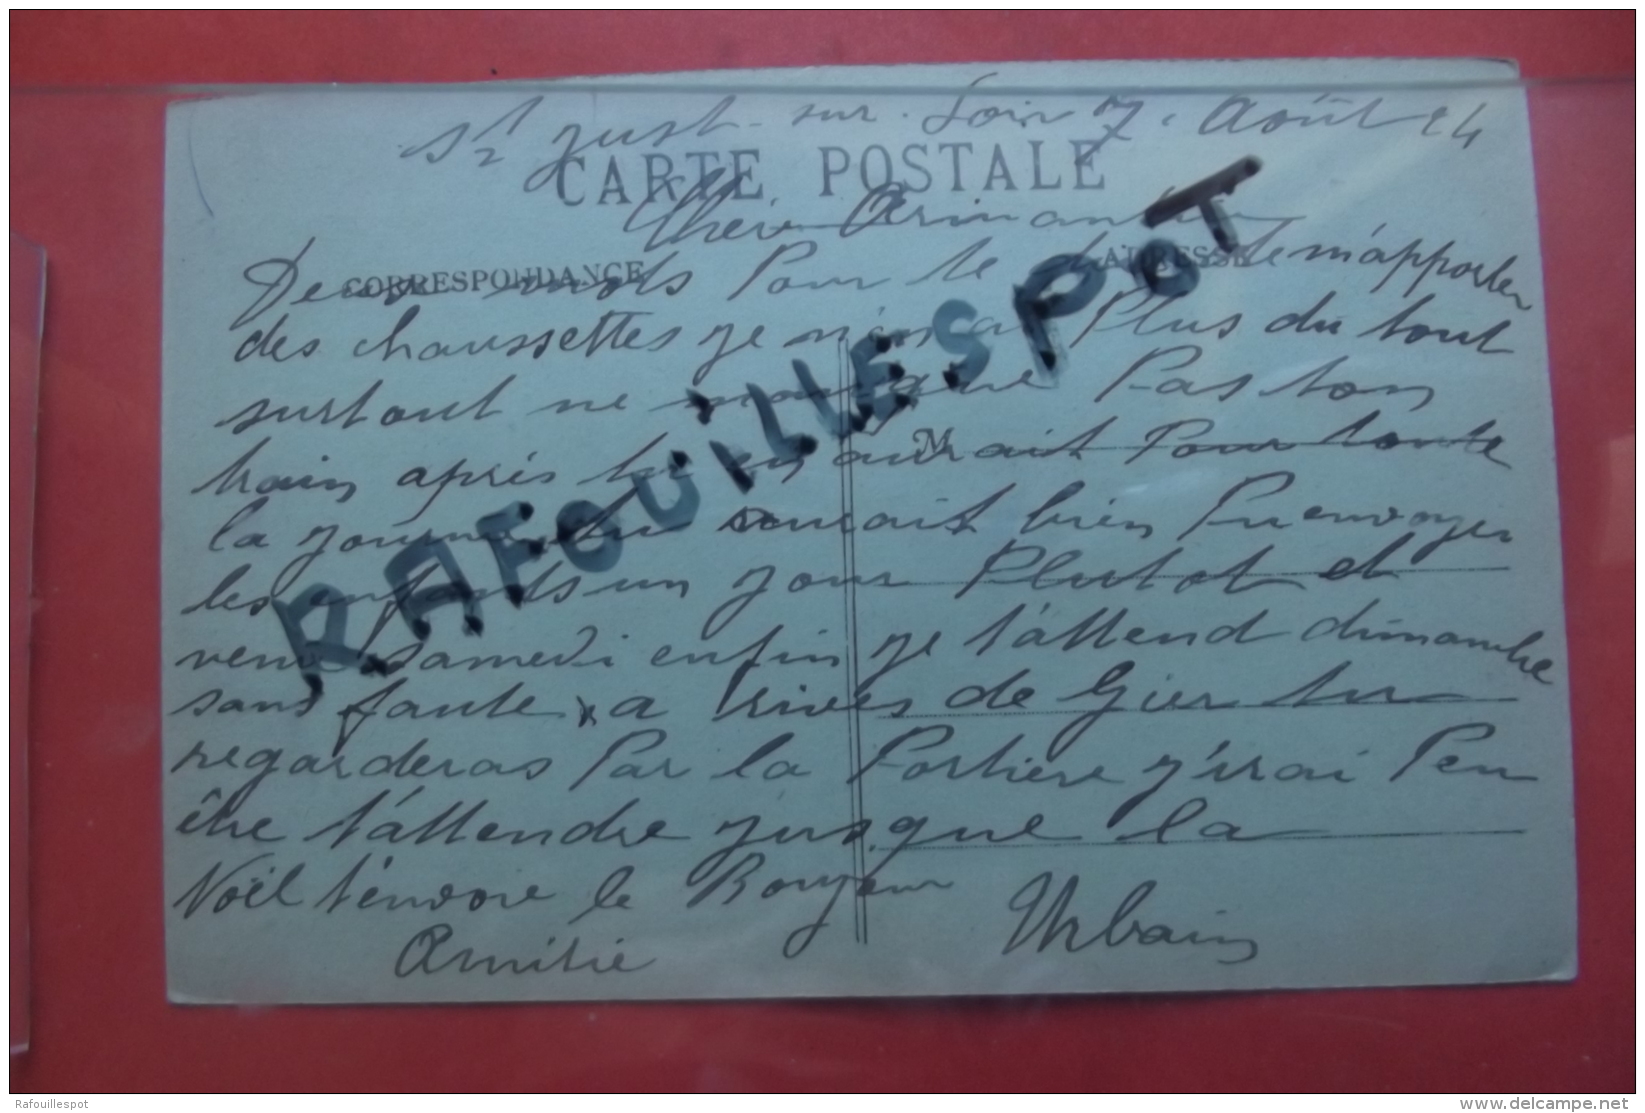 St just - sur - Loir 7. Août 24
CARTE POSTALE
Chère Armantine
CORRESPONDANCE
ADRESSE
Deux mots Pour te dire de m'apporter
des chaussettes je n'en ai Plus du tout
surtout ne manque Pas ton
train après tu en aurait Pour toute
M
la journée tu aurait bien Pu envoyer
les enfants un jour Plutot et
venir samedi enfin je t'attend dimanche
sans faute a Rives de Gier tu
regarderas Par la Portière j'irai Peu
être t'attendre jusque la
Noël t'envoie le Bonjour
Amitié Urbain
RAFOUILLESPOT
Rafouillespot
www.delcampe.net